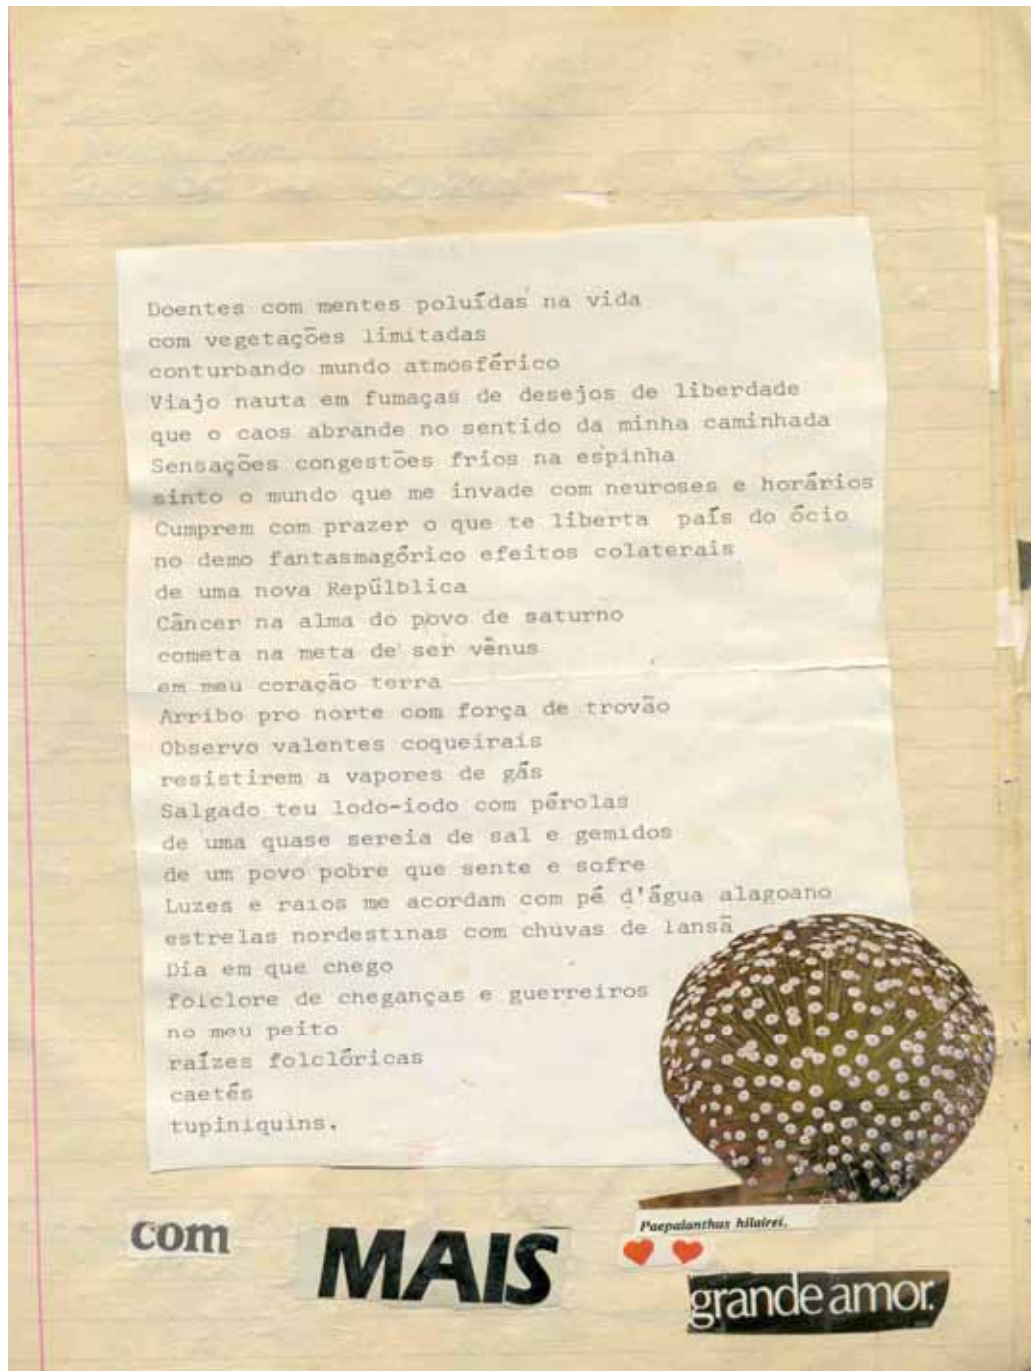 Doentes com mentes poluídas na vida
com vegetações limitadas
conturbando mundo atmosférico
Viajo nauta em fumaças de desejos de liberdade
que o caos abrande no sentido da minha caminhada
Sensações congestões frios na espinha
sinto o mundo que me invade com neuroses e horários
Cumprem com prazer o que te liberta  país do ócio
no demo fantasmagórico efeitos colaterais
de uma nova Repúlblica
Câncer na alma do povo de saturno
cometa na meta de ser vênus
em meu coração terra
Arribo pro norte com força de trovão
Observo valentes coqueirais
resistirem a vapores de gás
Salgado teu lodo-iodo com pérolas
de uma quase sereia de sal e gemidos
de um povo pobre que sente e sofre
Luzes e raios me acordam com pé d'água alagoano
estrelas nordestinas com chuvas de Iansã
Dia em que chego
folclore de cheganças e guerreiros
no meu peito
raízes folclóricas
caetés
tupiniquins.
Paepalanthus hilairei.
com MAIS
grande amor.